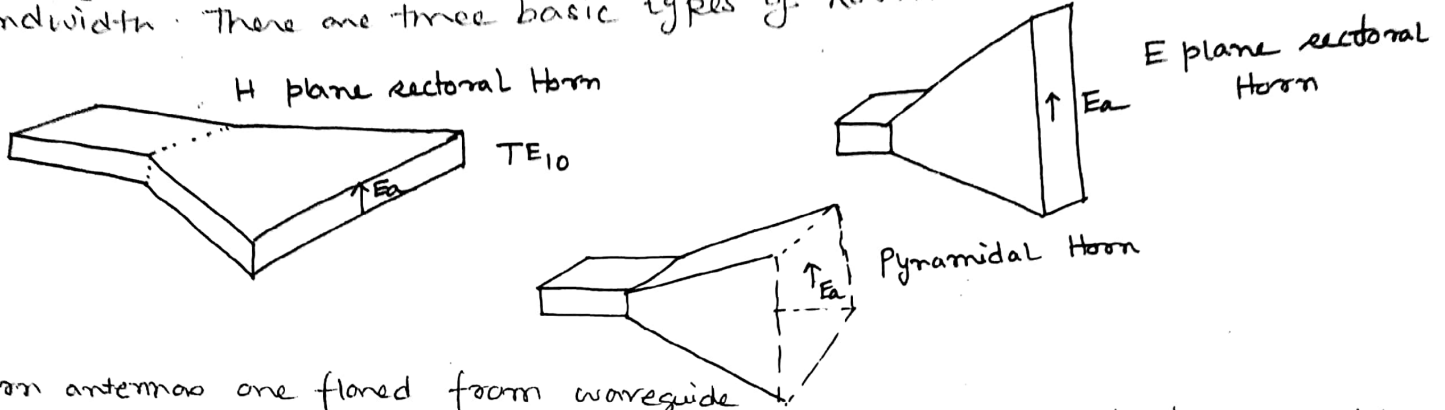 ndwidth. There are three basic types of
H plane sectoral Horn
E plane sectoral
Horn
TE10
Ea
Ea
Ea
Pyramidal Horn
on antennas are flared from waveguide